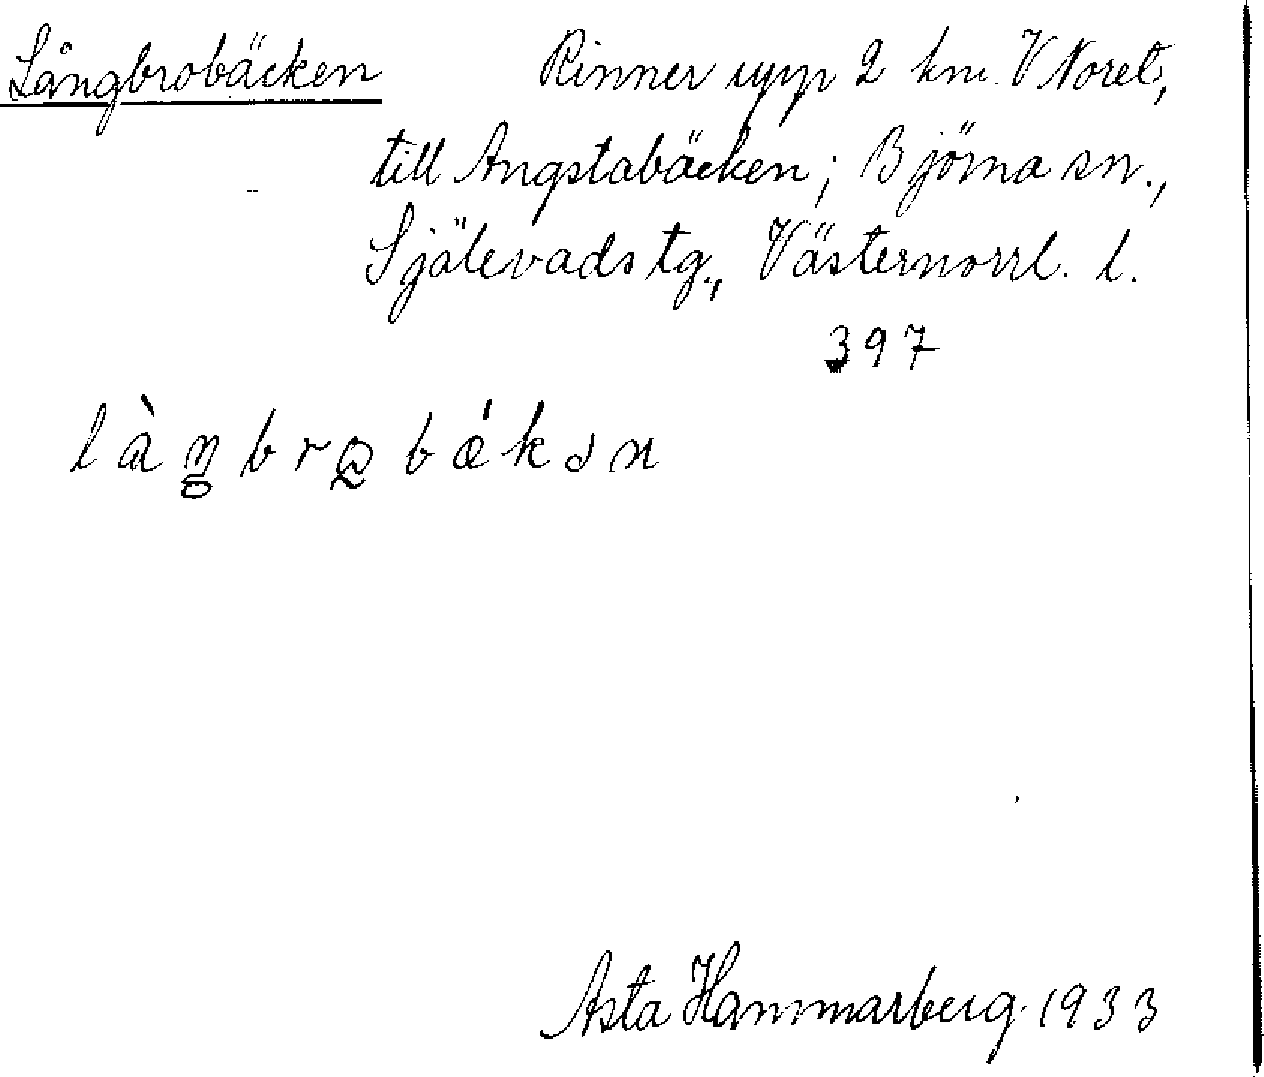 Långbrobäcken Rinner upp 2 km. V Noret,
till Angstabäcken; Björna sn.,
Själevads tg., Västernorrl. l.
397
làŋbrǫbǽkən
Asta Hammarberg. 1933